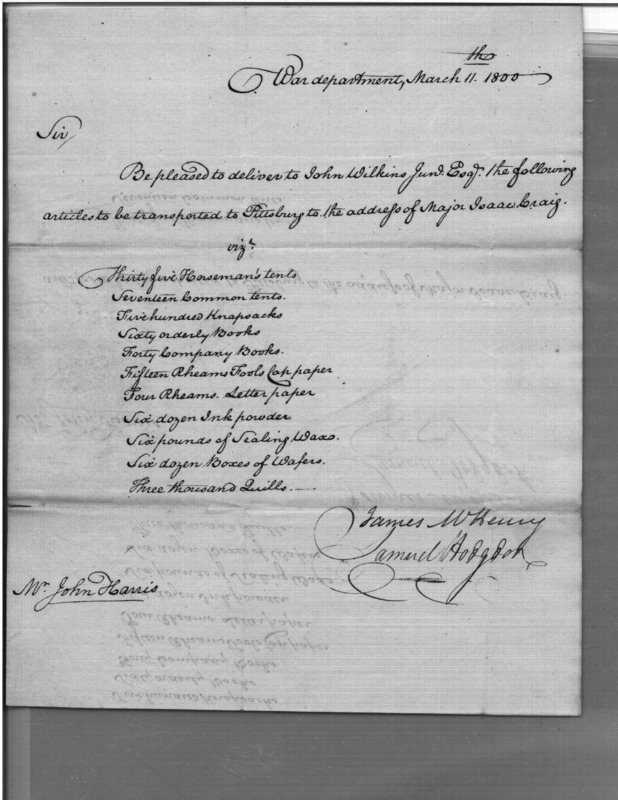 War department, March 11th 1800
Sir,
Be pleased to deliver to John Wilkins Junr. Esqr. the following
articles to be transported to Pittsburg to the address of Major Isaac Craig.
vizt.
Thirty five Horseman's tents
Seventeen Common tents.
Five hundred Knapsacks
Sixty orderly Books
Forty Company Books.
Fifteen Rheams Fools Cap paper
Four Rheams. Letter paper
Six dozen Ink powder
Six pounds of Sealing Wax.
Six dozen Boxes of Wafers.
Three thousand Quills.
James McHenry
Samuel Hodgdon
Mr. John Harris